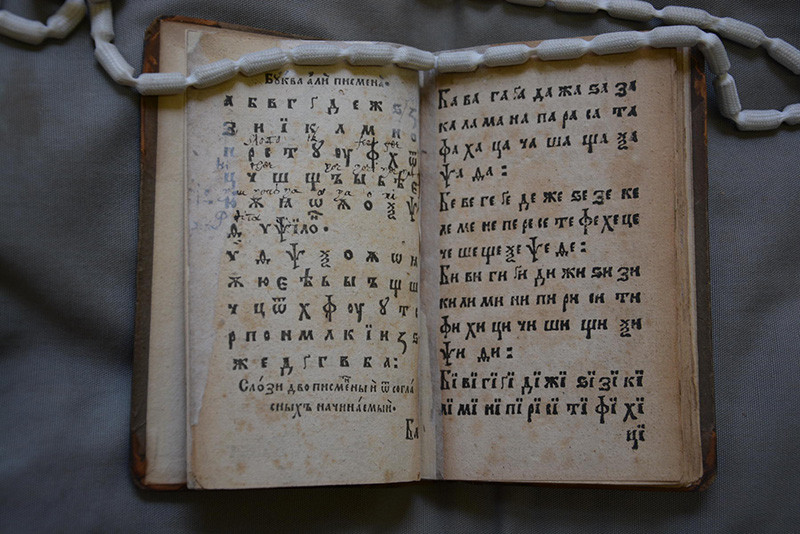 Бу́ква а҆́ли писмена̀.
а б в г ґ д е ж ѕ ꙁ
з и ї к л м н о
п р с т ꙋ оу ф х ѿ
ц ч ш щ ъ ы ь ѣ є
ю ж ѡ ѫ о ѯ ѱ
ѳ ѵ ѱїло.
ѵ ѳ ѱ ѯ о ж ѡ и
ѫ ю є ѣ ь ы ъ щ ш
ч ц ѿ х ф оу ꙋ т с
р п о н м л к ї и ꙁ ѕ
ж е д ґ г в б а:
Сло́зи дво писме́нны й ѿ согла́
сныхъ начина́емый.
Ба
Ба ва га ґа да жа ѕа за
ка ла ма на па ра са та
фа ха ца ча ша ща ѯа
ѱа ѳа :
Бе ве ге ґе де же ѕе зе ке
ле ме не пе ре се те фе хе це
че ше ще ѯе ѱе ѳе :
Би ви ги ґи ди жи ѕи зи
ки ли ми ни пи ри си ти
фи хи ци чи ши щи ѯи
ѱи ѳи :
Бї вї гї ґї дї жї ѕї зї кї
лї мї нї пї рї сї тї фї хї
цї